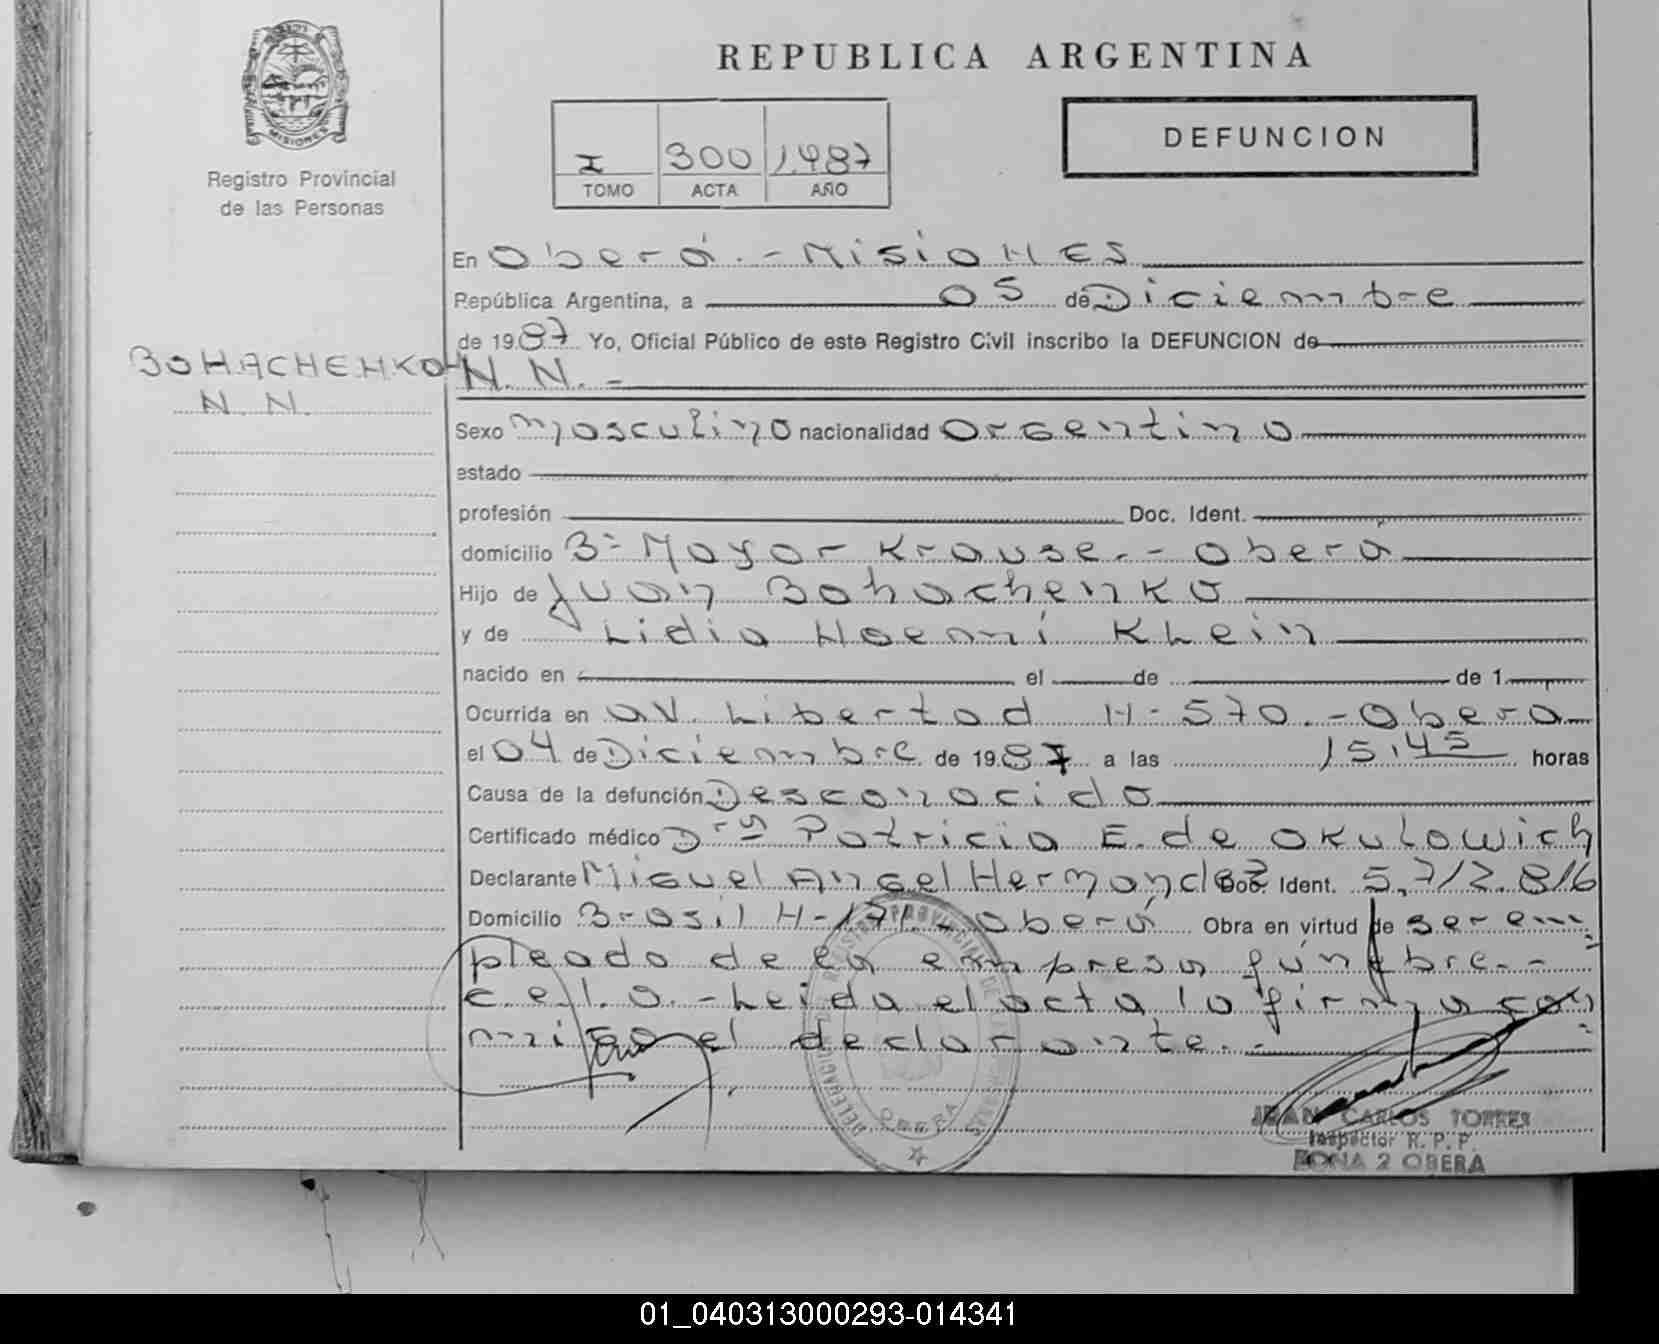 REPUBLICA ARGENTINA
MISIONES
Registro Provincial
de las Personas
I 300 1.987
TOMO ACTA AÑO
DEFUNCION
En Oberá.- Misiones
República Argentina, a 05 de Diciembre
de 19 87 Yo, Oficial Público de este Registro Civil inscribo la DEFUNCION de
BOHACHENKO N.N.-
N. N.
Sexo masculino nacionalidad Argentino
estado
profesión Doc. Ident.
domicilio Bº Mayor Krause.- Oberá
Hijo de Juan Bohachenko
y de Lidia Noemí Klein
nacido en el de de 1
Ocurrida en av. Libertad N-570.-Oberá
el 04 de Diciembre de 19 87 a las 15,45 horas
Causa de la defunción Desconocido
Certificado médico Drª Patricia E. de Okulowich
Declarante Miguel Angel Hernandez Doc. Ident. 5.712.816
Domicilio Brasil N-171.- Oberá Obra en virtud de ser em-
pleado de la empresa fúnebre.-
C.e.l.o.-Leida el acta la firma con
migo el declarante.-
REGISTRO PROVINCIAL DE LAS PERSONAS
DELEGACION
OBERA
JUAN CARLOS TORRES
Inspector R. P. P.
ZONA 2 OBERA
01_040313000293-014341